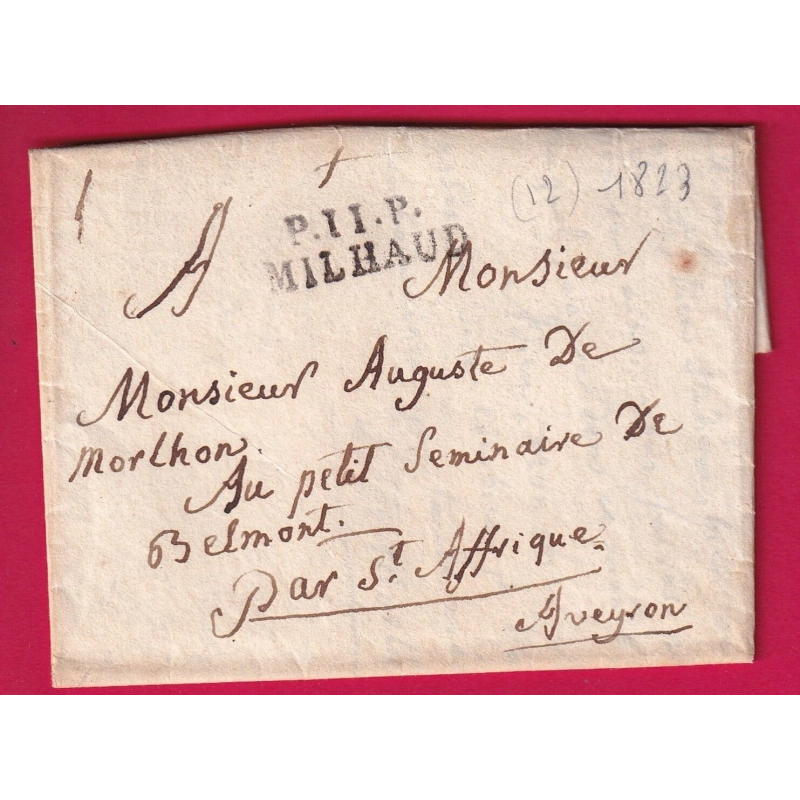 (12) 1823
P.11.P.
MILHAUD
A Monsieur
Monsieur Auguste De
Morlhon.
Au petit Seminaire De
Belmont.
Par St. Affrique
Aveyron